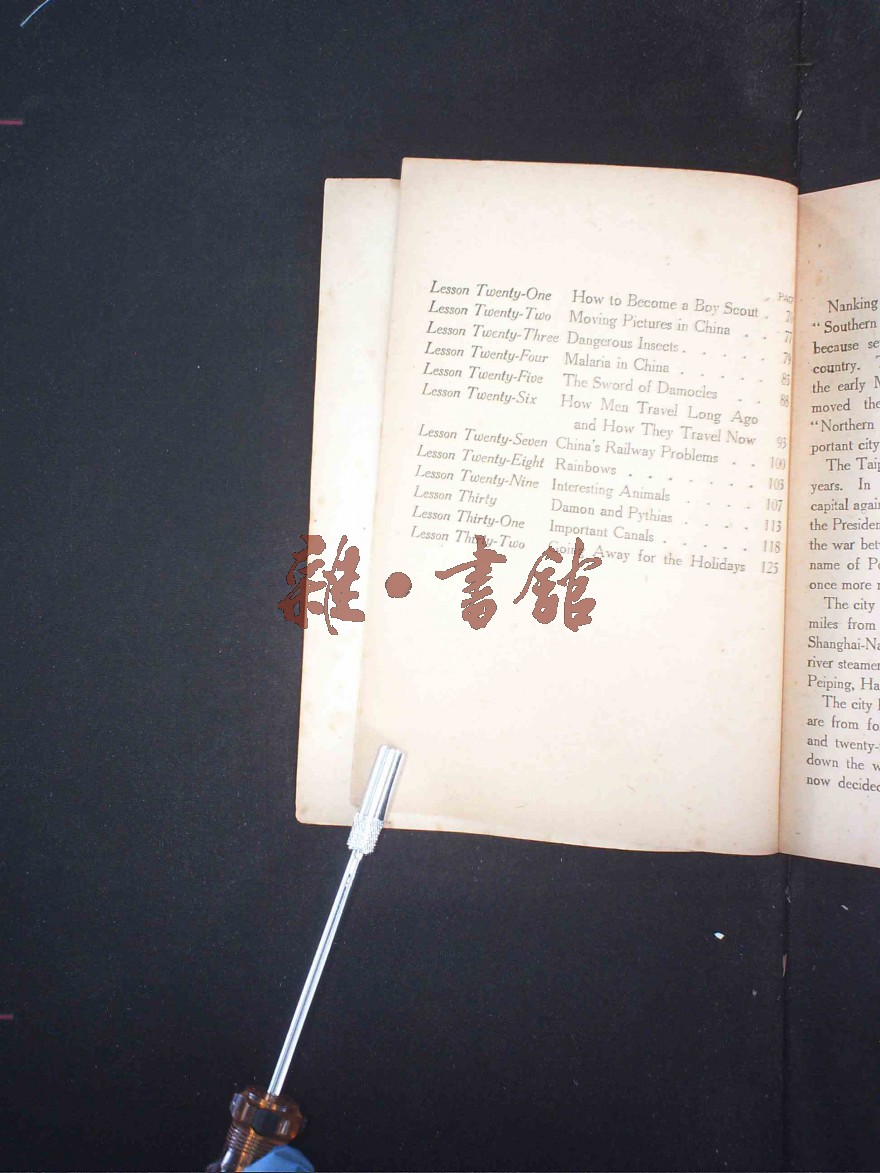 PAG
Lesson Twenty-One How to Become a Boy Scout .
Lesson Twenty-Two Moving Pictures in China . . 77
Lesson Twenty-Three Dangerous Insects . . . . . 79
Lesson Twenty-Four Malaria in China . . . . . 85
Lesson Twenty-Five The Sword of Damocles . . 88
Lesson Twenty-Six How Men Travel Long Ago
and How They Travel Now 93
Lesson Twenty-Seven China's Railway Problems . . 100
Lesson Twenty-Eight Rainbows . . . . . . . 103
Lesson Twenty-Nine Interesting Animals . . . . 107
Lesson Thirty Damon and Pythias . . . . 113
Lesson Thirty-One Important Canals . . . . . 118
Lesson Thirty-Two Going Away for the Holidays 125
雜·書館
Nanking
"Southern
because se
country.
the early M
moved the
"Northern
portant city
The Taip
years. In
capital again
the Presiden
the war betw
name of Pe
once more
The city
miles from
Shanghai-Na
river steamer
Peiping, Ha
The city
are from fo
and twenty-
down the w
now decided